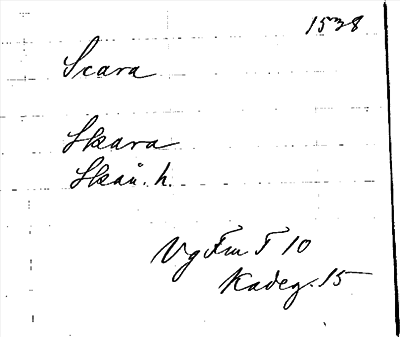 1538
Scara
Skara
Skån. h.
Vg Fm T 10
Kadeg. 15